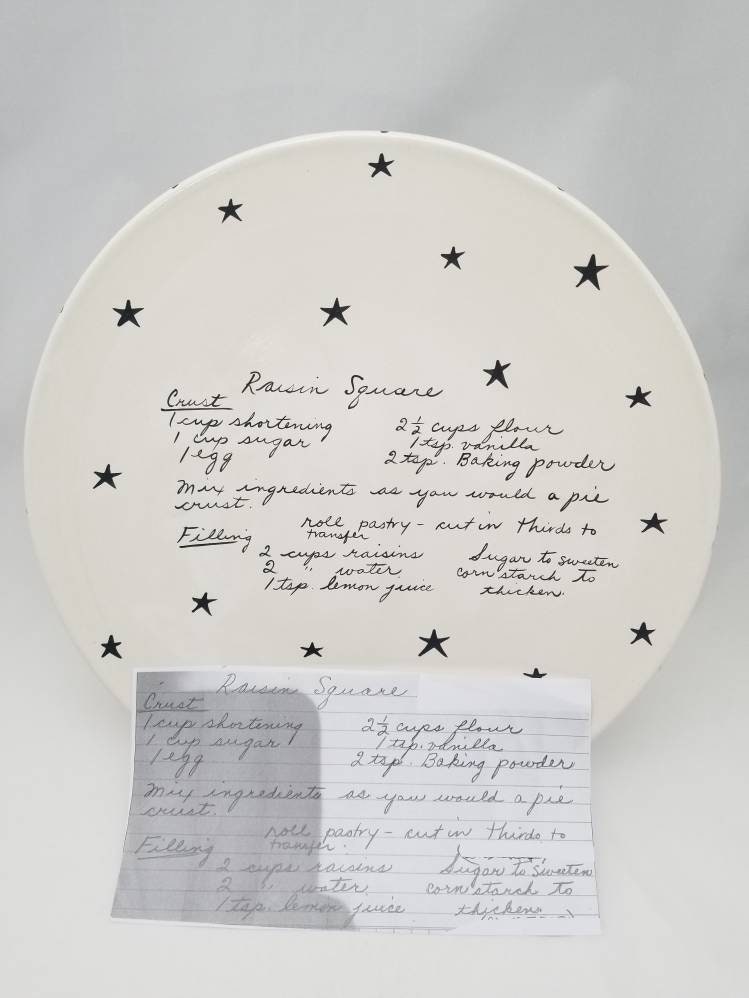 Raisin Square
Crust
1 cup shortening 2 1/2 cups flour
1 cup sugar 1 tsp. vanilla
1 egg 2 tsp. Baking powder
Mix ingredients as you would a pie
crust.
roll pastry - cut in thirds to
Filling transfer
2 cups raisins Sugar to sweeten
2 " water corn starch to
1 tsp. lemon juice thicken.
Raisin Square
Crust
1 cup shortening 2 1/2 cups flour
1 cup sugar 1 tsp. vanilla
1 egg 2 tsp. Baking powder
Mix ingredients as you would a pie
crust.
roll pastry - cut in thirds to
Filling transfer.
2 cups raisins Sugar to Sweeten
2 " water corn starch to
1 tsp. lemon juice thicken.